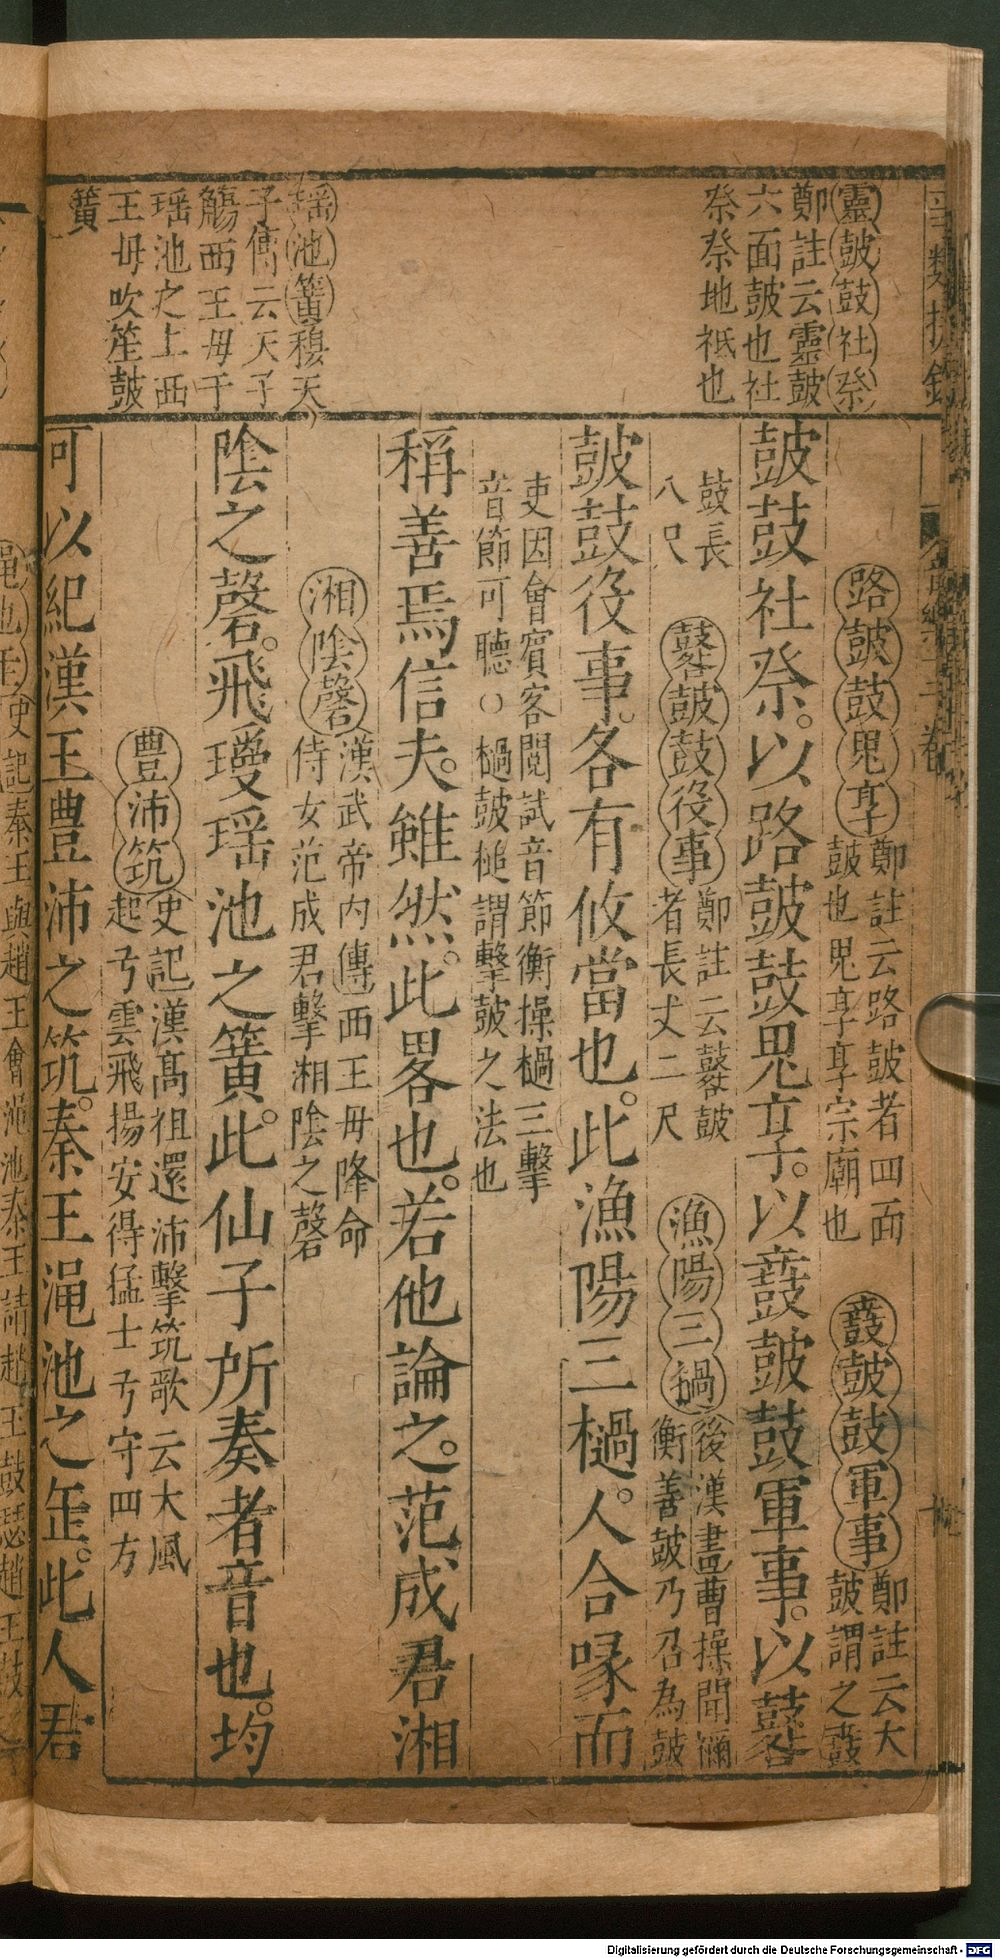 靈鼓鼓社祭
鄭註云靈鼓
六面鼓也社
祭祭地祇也
瑶池簧穆天
子傳云天子
觴西王母于
瑶池之上西
王母吹笙鼓
簧
路鼓鼓鬼享
鄭註云路鼓者四面
鼓也鬼享享宗廟也
鼖鼓鼓軍事
鄭註云大
鼓謂之鼖
鼓鼓社祭。以路鼓鼓鬼享。以鼖鼓鼓軍事。以鼛
鼓長
八尺
鼛鼓鼓役事
鄭註云鼛鼓
者長丈二尺
漁陽三撾
後漢書曹操聞禰
衡善鼓乃召為鼓
鼓鼓役事。各有攸當也。此漁陽三檛。人合喙而
吏因會賓客閱試音節衡操檛三擊
音節可聽○檛鼓槌謂擊鼓之法也
稱善焉信夫。雖然。此畧也。若他論之。范成君湘
湘陰磬
漢武帝內傳西王母降命
侍女范成君擊湘陰之磬
陰之磬。飛璦瑶池之簧。此仙子所奏者音也。均
豊沛筑
史記漢高祖還沛擊筑歌云大風
起兮雲飛揚安得猛士兮守四方
可以紀漢王豊沛之筑。秦王澠池之缶。此人君
史記秦王與趙王會澠池秦王請趙王鼓瑟趙王鼓
Digitalisierung gefördert durch die Deutsche Forschungsgemeinschaft - DFG